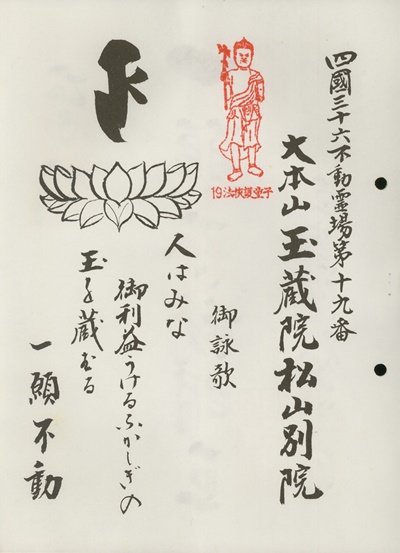 四國三十六不動霊場第十九番
大本山玉蔵院松山別院
19法挾護童子
御詠歌
人はみな
御利益うけるふかしぎの
玉を蔵むる
一願不動